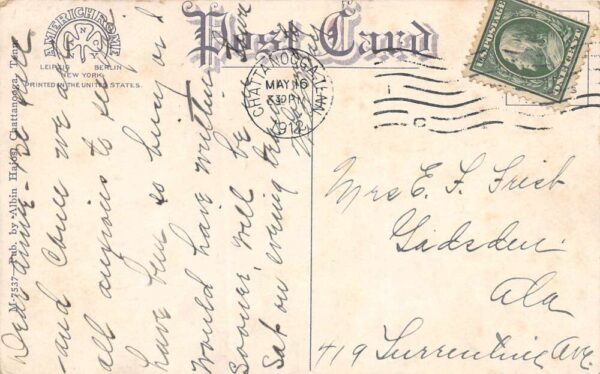 Post Card
AMERICHROME
N Y
LEIPZIG BERLIN
NEW YORK
PRINTED IN THE UNITED STATES.
M-7537 Pub. by Albin Hajos, Chattanooga, Tenn.
U.S. POSTAGE
ONE CENT
CHATTANOOGA, TENN.
MAY 16
630 PM
1912
1
Dear
and come we are
all anxious to see
have been so busy or I
would have written
sooner, will be
Sat on evening train
Mrs E. F. Frist
Gadsden
Ala
419 Turrentine Ave.